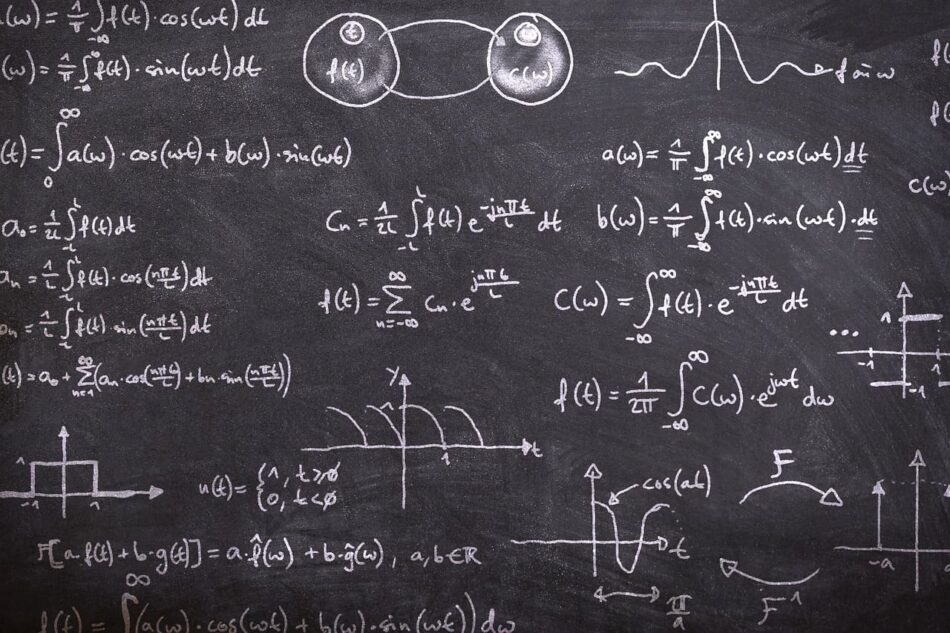 a(ω) = 1/π ∫_{-∞} f(t)·cos(ωt) dt
(ω) = 1/π ∫_{-∞} f(t)·sin(ωt) dt
t
f(t)
c(ω)
ω
(t) = ∫_0^∞ a(ω)·cos(ωt) + b(ω)·sin(ωt)
a(ω) = 1/π ∫_{-∞}^∞ f(t)·cos(ωt) dt
f(
f(
c(ω)
a₀ = 1/2L ∫_{-L}^L f(t) dt
Cn = 1/2L ∫_{-L}^L f(t) e^{-jnπt/L} dt
b(ω) = 1/π ∫_{-∞}^∞ f(t)·sin(ωt)·dt
an = 1/L ∫_{-L}^L f(t)·cos(nπt/L) dt
f(t) = ∑_{n=-∞}^∞ Cn·e^{jnπt/L}
C(ω) = ∫_{-∞}^∞ f(t)·e^{-jnπt/L} dt
bn = 1/L ∫_{-L}^L f(t)·sin(nπt/L) dt
...
1
-1
-1
(t) = a₀ + ∑_{n=1}^∞ (an·cos(nπt/L) + bn·sin(nπt/L))
f(t) = 1/2π ∫_{-∞}^∞ C(ω)·e^{jωt} dω
y
1
t
1
1
-1
1
u(t) = {1, t≥0
0, t<0
cos(at)
t
π/a
F
F⁻¹
-a
F[a·f(t) + b·g(t)] = a·f̂(ω) + b·ĝ(ω), a,b∈ℝ
f(t) = ∫^∞ (a(ω)·cos(ωt) + b(ω)·sin(ωt)) dω